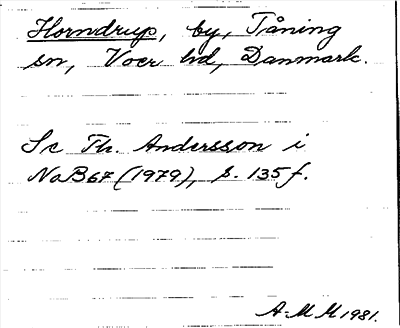 Horndrup, by, Tåning
sn, Voer hd, Danmark.
Se Th. Andersson i
NoB 67 (1979), s. 135 f.
A-M M 1981.